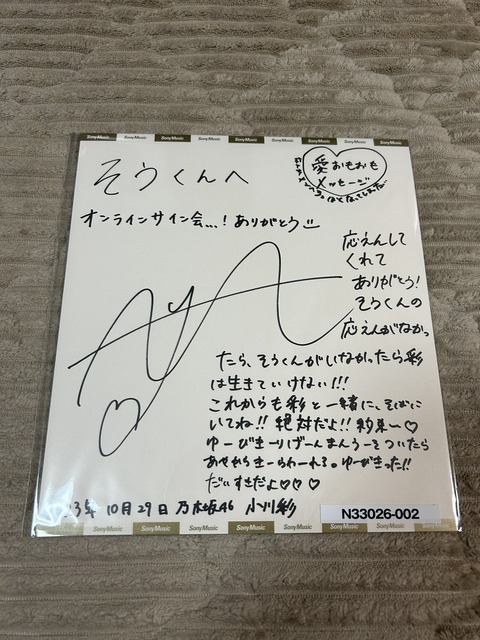 Sony Music Sony Music Sony Music Sony Music Sony Music Sony Music Sony Music Sony Music Sony Music
そうくんへ
愛おもおも
メッセージ
オンラインサイン会...! ありがとう
応えんして
くれて
ありがとう!
そうくんの
応えんがなかっ
AyA
たら、そうくんがいなかったら彩
は生きていけない!!!
これからも彩と一緒に、そばに
いてね!! 絶対だよ!! 約束〜♡
ゆーびきーりげーんまんうーそついたら
あやからきーらわーれる。ゆーびきった!!
だいすきだよ♡♡♡
3年 10月29日 乃木坂46 小川彩
N33026-002
Sony Music Sony Music Sony Music Sony Music Sony Music